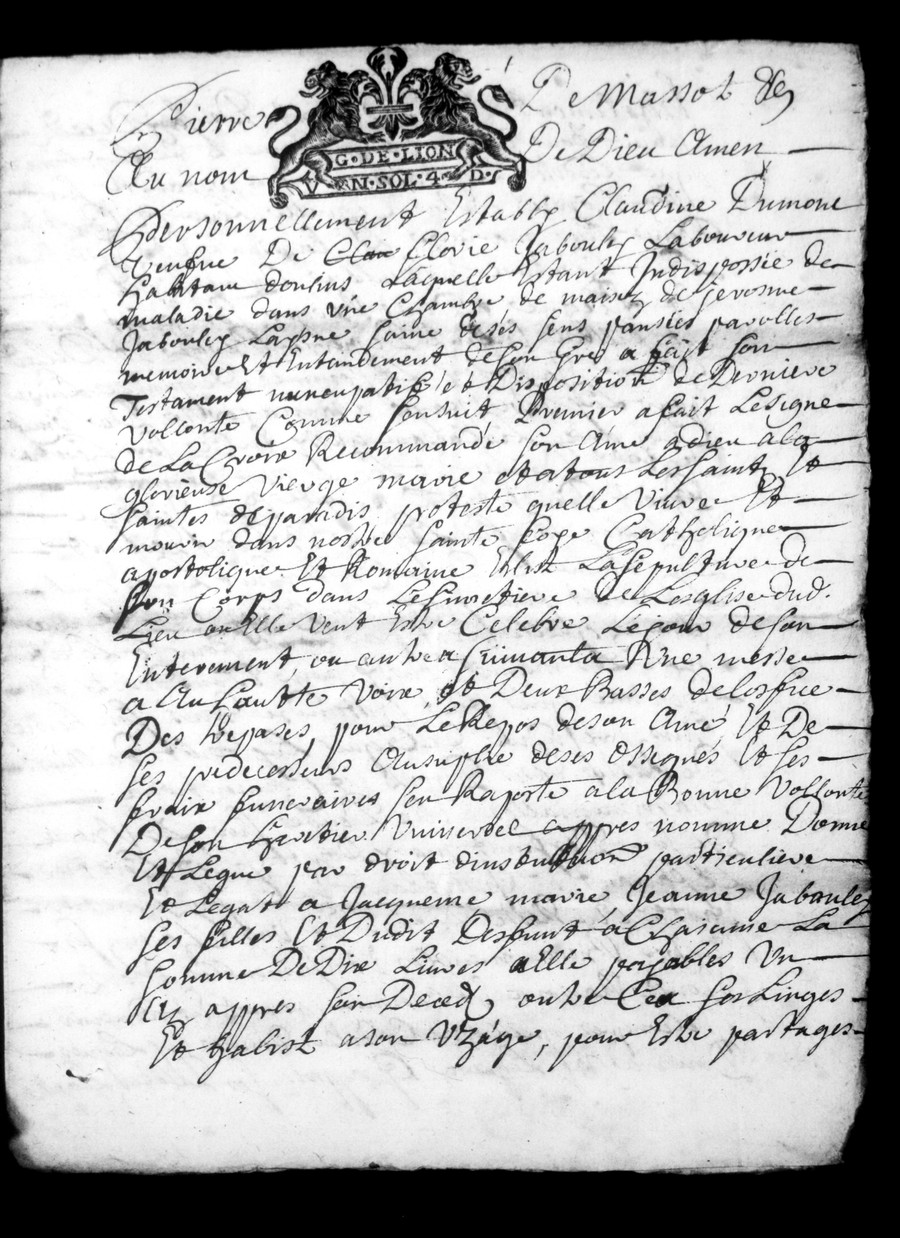 Pierre De Massot &
G·DE·LION
VN·SOL·4·D·
Au nom De Dieu Amen
Personnellement Estably Claudine Dumont
veufve De Clau Clovie Jabouley Laboureur
habitant doulins Laquelle Estant Indisposée de
maladie dans vne Chambre de maison de Jerosme
Jabouley Layne saine de ses sens pansées parolles
memoire Et Entandement de son Gres a fait son
Testament nuncupatif et Disposition de Derniere
vollonte Comme sensuit Premier a fait Le signe
de La Croix Recommandé son Ame a dieu a la
glorieuse Vierge marie et a tous Les Saintz Et
Saintes de paradis proteste quelle Vivre Et
mourir dans nostre sainte foye Catholique
apostolique Et Romaine Eslit La Sepulture de
son Corps dans Le Simetiere de Lesglise dud.
Lieu ou Elle Veut Estre Celebre Le jour de son
Enterement, ou autre a Vne messe
a Au Lautte Voix et Deux Basses de Loffice
Des trepases pour Le Repos de son Ame Et De
ses predecesseurs Au de ses Et ses
fraix funeraires sen Raporte a la Bonne Vollonte
De son heritier Vniversel appres nomme Donne
Et Legue par droit dinstitution particuliere
Et Legat a Jacqueme marie Jeanne Jabouley
ses filles Et Dudit Deffunt a Chascune La
somme De Dix Livres a Elle payables Vn
An appres son Deced outre Cea ses Linges
Et habist a son Vzage, pour Estre partages